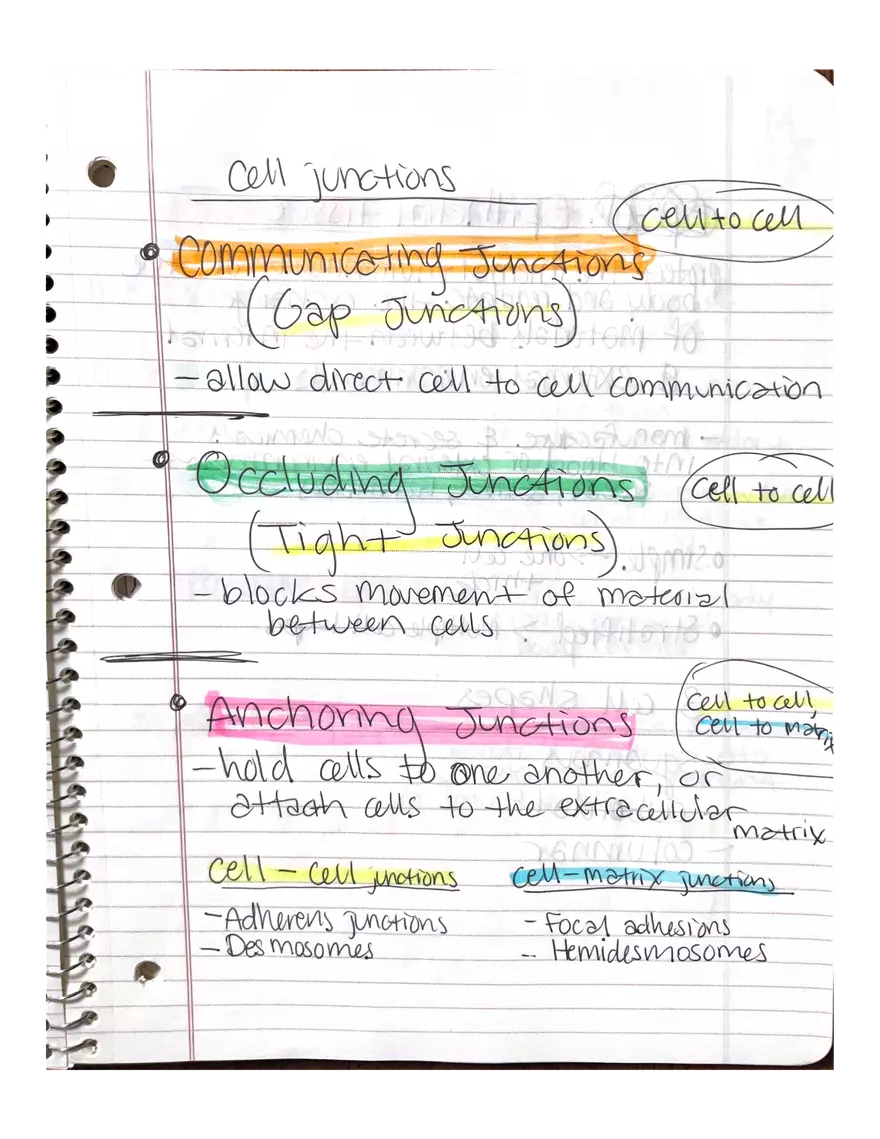 Cell junctions
cell to cell
Communicating Junctions
(Gap Junctions)
- allow direct cell to cell communication
Occluding Junctions
cell to cell
(Tight Junctions).
- blocks movement of material
between cells.
Anchoring Junctions
cell to cell,
cell to matrix
- hold cells to one another, or
attach cells to the extracellular
matrix
cell - cell junctions
cell-matrix junctions
- Adherens junctions
- Focal adhesions
- Desmosomes
- Hemidesmosomes